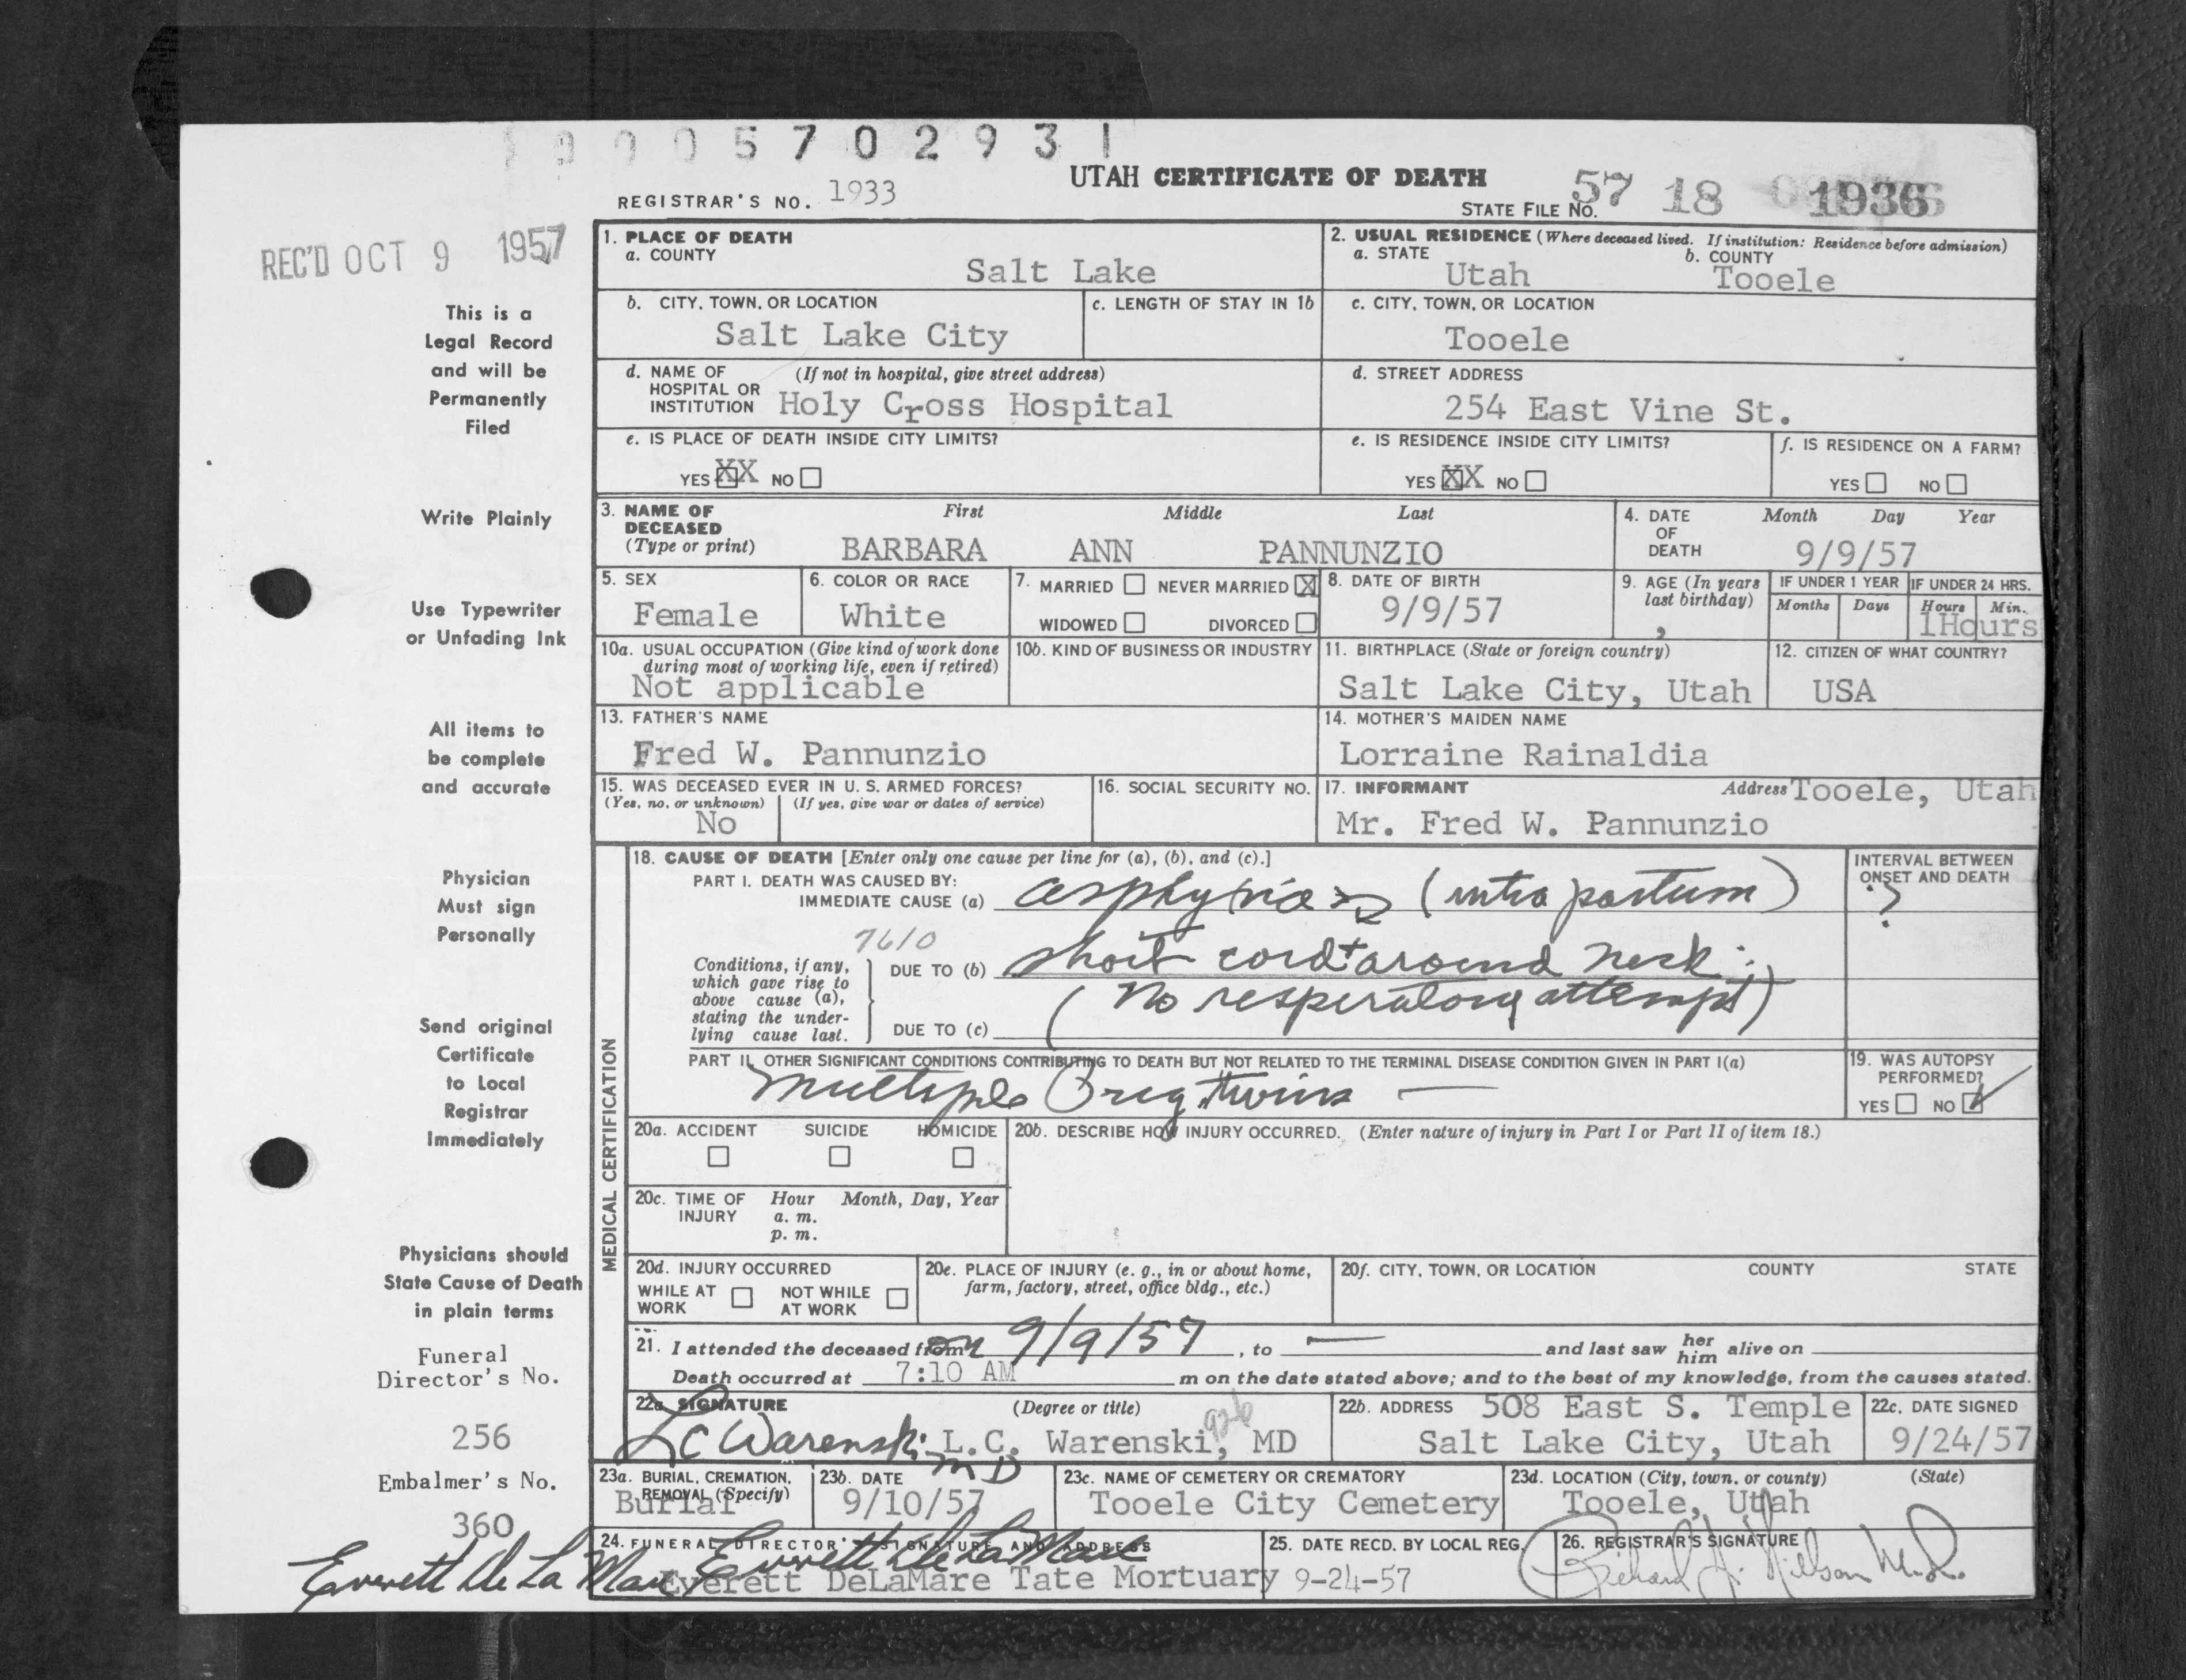 1 9 0 0 5 7 0 2 9 3 1
UTAH CERTIFICATE OF DEATH
REGISTRAR'S NO. 1933
STATE FILE NO. 57 18 1936
REC'D OCT 9 1957
This is a
Legal Record
and will be
Permanently
Filed
Write Plainly
Use Typewriter
or Unfading Ink
All items to
be complete
and accurate
Physician
Must sign
Personally
Send original
Certificate
to Local
Registrar
Immediately
Physicians should
State Cause of Death
in plain terms
Funeral
Director's No.
256
Embalmer's No.
360
Everett De La Mare
1. PLACE OF DEATH
a. COUNTY
Salt Lake
2. USUAL RESIDENCE (Where deceased lived. If institution: Residence before admission)
a. STATE b. COUNTY
Utah Tooele
b. CITY, TOWN, OR LOCATION
Salt Lake City
c. LENGTH OF STAY IN 1b
c. CITY, TOWN, OR LOCATION
Tooele
d. NAME OF (If not in hospital, give street address)
HOSPITAL OR
INSTITUTION Holy Cross Hospital
d. STREET ADDRESS
254 East Vine St.
e. IS PLACE OF DEATH INSIDE CITY LIMITS?
YES XX NO
e. IS RESIDENCE INSIDE CITY LIMITS?
YES XX NO
f. IS RESIDENCE ON A FARM?
YES NO
3. NAME OF First Middle Last
DECEASED
(Type or print) BARBARA ANN PANNUNZIO
4. DATE Month Day Year
OF
DEATH 9/9/57
5. SEX
Female
6. COLOR OR RACE
White
7. MARRIED NEVER MARRIED X
WIDOWED DIVORCED
8. DATE OF BIRTH
9/9/57
9. AGE (In years
last birthday)
IF UNDER 1 YEAR IF UNDER 24 HRS.
Months Days Hours Min.
1Hours
10a. USUAL OCCUPATION (Give kind of work done
during most of working life, even if retired)
Not applicable
10b. KIND OF BUSINESS OR INDUSTRY
11. BIRTHPLACE (State or foreign country)
Salt Lake City, Utah
12. CITIZEN OF WHAT COUNTRY?
USA
13. FATHER'S NAME
Fred W. Pannunzio
14. MOTHER'S MAIDEN NAME
Lorraine Rainaldia
15. WAS DECEASED EVER IN U. S. ARMED FORCES?
(Yes, no, or unknown) (If yes, give war or dates of service)
No
16. SOCIAL SECURITY NO.
17. INFORMANT Address Tooele, Utah
Mr. Fred W. Pannunzio
MEDICAL CERTIFICATION
18. CAUSE OF DEATH [Enter only one cause per line for (a), (b), and (c).]
PART I. DEATH WAS CAUSED BY:
IMMEDIATE CAUSE (a) asphyxia (intra partum)
INTERVAL BETWEEN
ONSET AND DEATH
?
7610
Conditions, if any,
which gave rise to
above cause (a),
stating the under-
lying cause last.
DUE TO (b) short cord + around neck :
(No resperatory attempt)
DUE TO (c)
PART II. OTHER SIGNIFICANT CONDITIONS CONTRIBUTING TO DEATH BUT NOT RELATED TO THE TERMINAL DISEASE CONDITION GIVEN IN PART I(a)
Multiple Preg. twins —
19. WAS AUTOPSY
PERFORMED?
YES NO ✓
20a. ACCIDENT SUICIDE HOMICIDE
20b. DESCRIBE HOW INJURY OCCURRED. (Enter nature of injury in Part I or Part II of item 18.)
20c. TIME OF Hour Month, Day, Year
INJURY a. m.
p. m.
20d. INJURY OCCURRED
WHILE AT NOT WHILE
WORK AT WORK
20e. PLACE OF INJURY (e. g., in or about home,
farm, factory, street, office bldg., etc.)
20f. CITY, TOWN, OR LOCATION COUNTY STATE
21. I attended the deceased from on 9/9/57, to — and last saw her him alive on
Death occurred at 7:10 AM m on the date stated above; and to the best of my knowledge, from the causes stated.
22a. SIGNATURE (Degree or title)
LC Warenski MD L.C. Warenski, MD
22b. ADDRESS 508 East S. Temple
Salt Lake City, Utah
22c. DATE SIGNED
9/24/57
23a. BURIAL, CREMATION,
REMOVAL (Specify)
Burial
23b. DATE
9/10/57
23c. NAME OF CEMETERY OR CREMATORY
Tooele City Cemetery
23d. LOCATION (City, town, or county) (State)
Tooele, Utah
24. FUNERAL DIRECTOR'S SIGNATURE AND ADDRESS
Everett De La Mare
Everett DeLaMare Tate Mortuary
25. DATE RECD. BY LOCAL REG.
9-24-57
26. REGISTRAR'S SIGNATURE